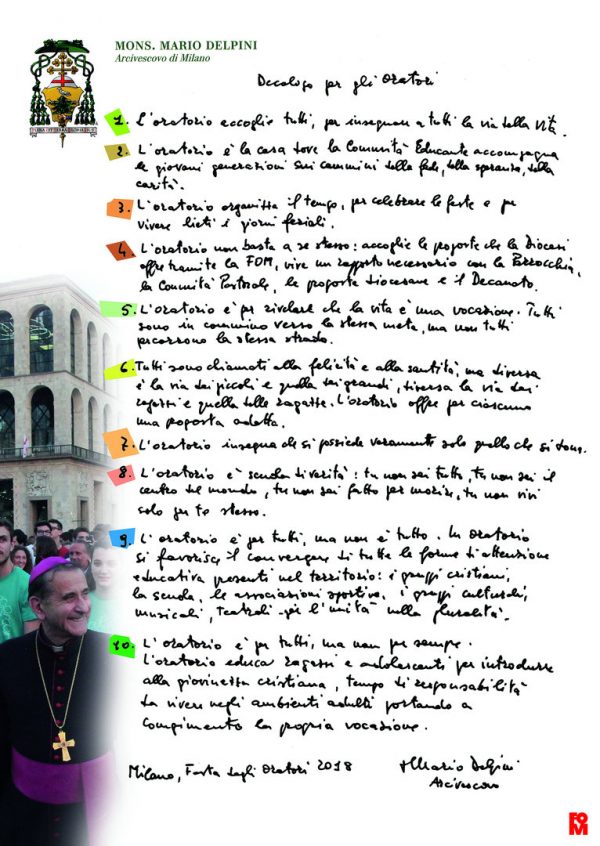 MONS. MARIO DELPINI
Arcivescovo di Milano
Decalogo per gli Oratori
1. L'oratorio accoglie tutti, per insegnare a tutti la via della vita.
2. L'oratorio è la casa dove la Comunità Educante accompagna
le giovani generazioni sui cammini della fede, della speranza, della
carità.
3. L'oratorio organizza il tempo, per celebrare le feste e per
vivere lieti i giorni feriali.
4. L'oratorio non basta a se stesso: accoglie le proposte che la Diocesi
offre tramite la FOM, vive un rapporto necessario con la Parrocchia,
la Comunità Pastorale, le proposte diocesane e il Decanato.
5. L'oratorio è per rivelare che la vita è una vocazione. Tutti
sono in cammino verso la stessa meta, ma non tutti
percorrono la stessa strada.
6. Tutti sono chiamati alla felicità e alla santità, ma diversa
è la via dei piccoli e quella dei grandi, diversa la via dei
ragazzi e quella delle ragazze. L'oratorio offre per ciascuno
una proposta adatta.
7. L'oratorio insegna che si possiede veramente solo quello che si dona.
8. L'oratorio è scuola di verità: tu non sei tutto, tu non sei il
centro del mondo, tu non sei fatto per morire, tu non vivi
solo per te stesso.
9. L'oratorio è per tutti, ma non è tutto. In oratorio
si favorisce il convergere di tutte le forme di attenzione
educativa presenti nel territorio: i gruppi cristiani,
la scuola, le associazioni sportive, i gruppi culturali,
musicali, teatrali - per l'unità nella pluralità.
10. L'oratorio è per tutti, ma non per sempre.
L'oratorio educa ragazzi e adolescenti per introdurre
alla giovinezza cristiana, tempo di responsabilità
da vivere negli ambienti adulti portando a
compimento la propria vocazione.
Milano, Festa degli Oratori 2018
+ Mario Delpini
Arcivescovo
FOM